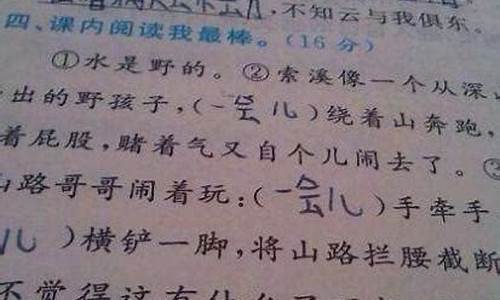 不知云与我俱东。
四、课内阅读我最棒。(16分)
①水是野的。②索溪像一个从深
出的野孩子,(一会儿)绕着山奔跑,
着屁股,赌着气又自个儿闹去了。③
山路哥哥闹着玩:(一会儿)手牵手
儿)横铲一脚,将山路拦腰截断
不觉得这有什么